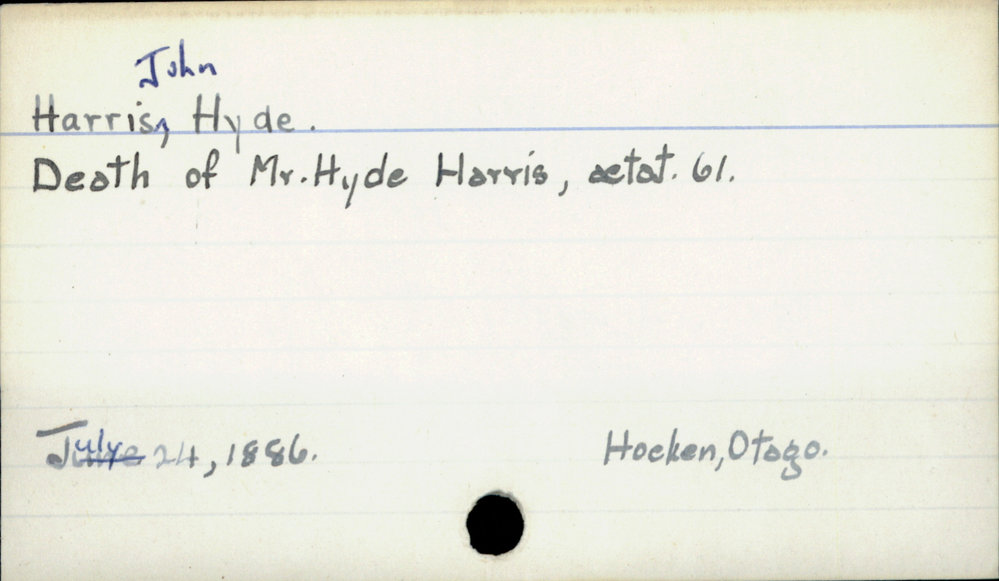 John
Harris, Hyde.
Death of Mr. Hyde Harris, ætat. 61.
July 24, 1886.
Hocken, Otago.